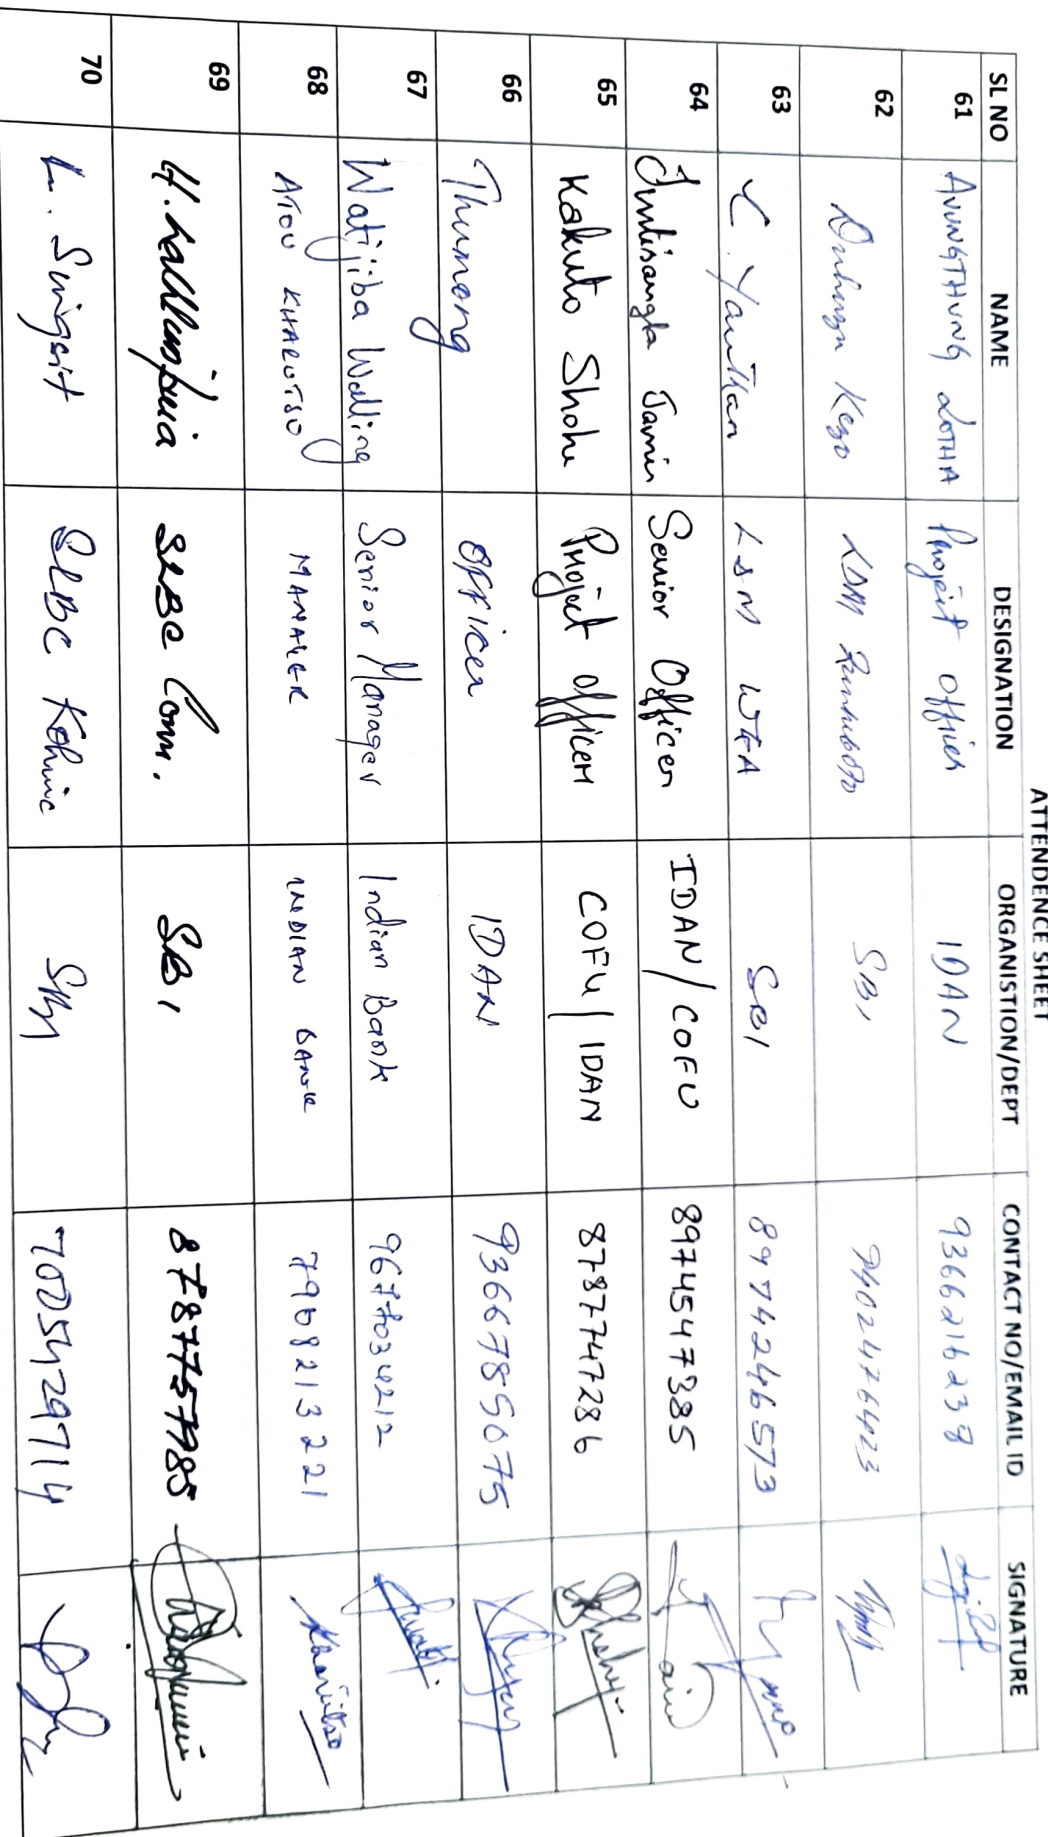 ATTENDENCE SHEET
SL NO NAME DESIGNATION ORGANISTION/DEPT CONTACT NO/EMAIL ID SIGNATURE
61 AVUNGTHUNG LOTHA Project Officer IDAN 9366216238
62 Kezo LDM Zunheboto SBI 9402476423
63 Y. Yanthan LDM WKA SBI 8974246573
64 Imlisangla Jamir Senior Officer IDAN/COFU 8974547385
65 Kakuto Shohe Project Officer COFU/IDAN 8787747286
66 Thunong Officer IDAN 9366785075
67 Watijiba Walling Senior Manager Indian Bank 9677034212
68 ATOU KHARUTSO MANAGER INDIAN BANK 7968213221 Kharutso
69 H. Lallluipuia SLBC Conv. SBI 8787757985
70 L. Singsit SLBC Kohima SBI 7005429714